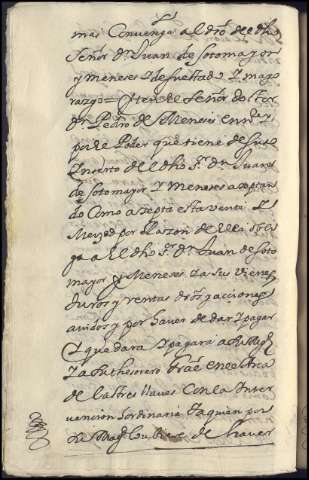 mas Convenga al dro de dho
Señor Dn Juan de sotomayor
y meneses y de su estado y mayo
razgo = y ten de Señor
Dn Pedro de Meneses en
Poder que tiene de suso
Inserto del dho Sr Dn Juan
de sotomayor y meneses aseptan
do Como asepta esta venta y
Merzed por Razon de ella
ga al dho Sr Dn Juan de soto
mayor y Meneses y a sus viene
y rentas dros y acciones
avidos y por haver de dar y pagar
y que dara y pagara a su Magd
y a su thesorero
de las tres llaves Con la Inter
vencion ordinaria y a quien por
su Magd de haver